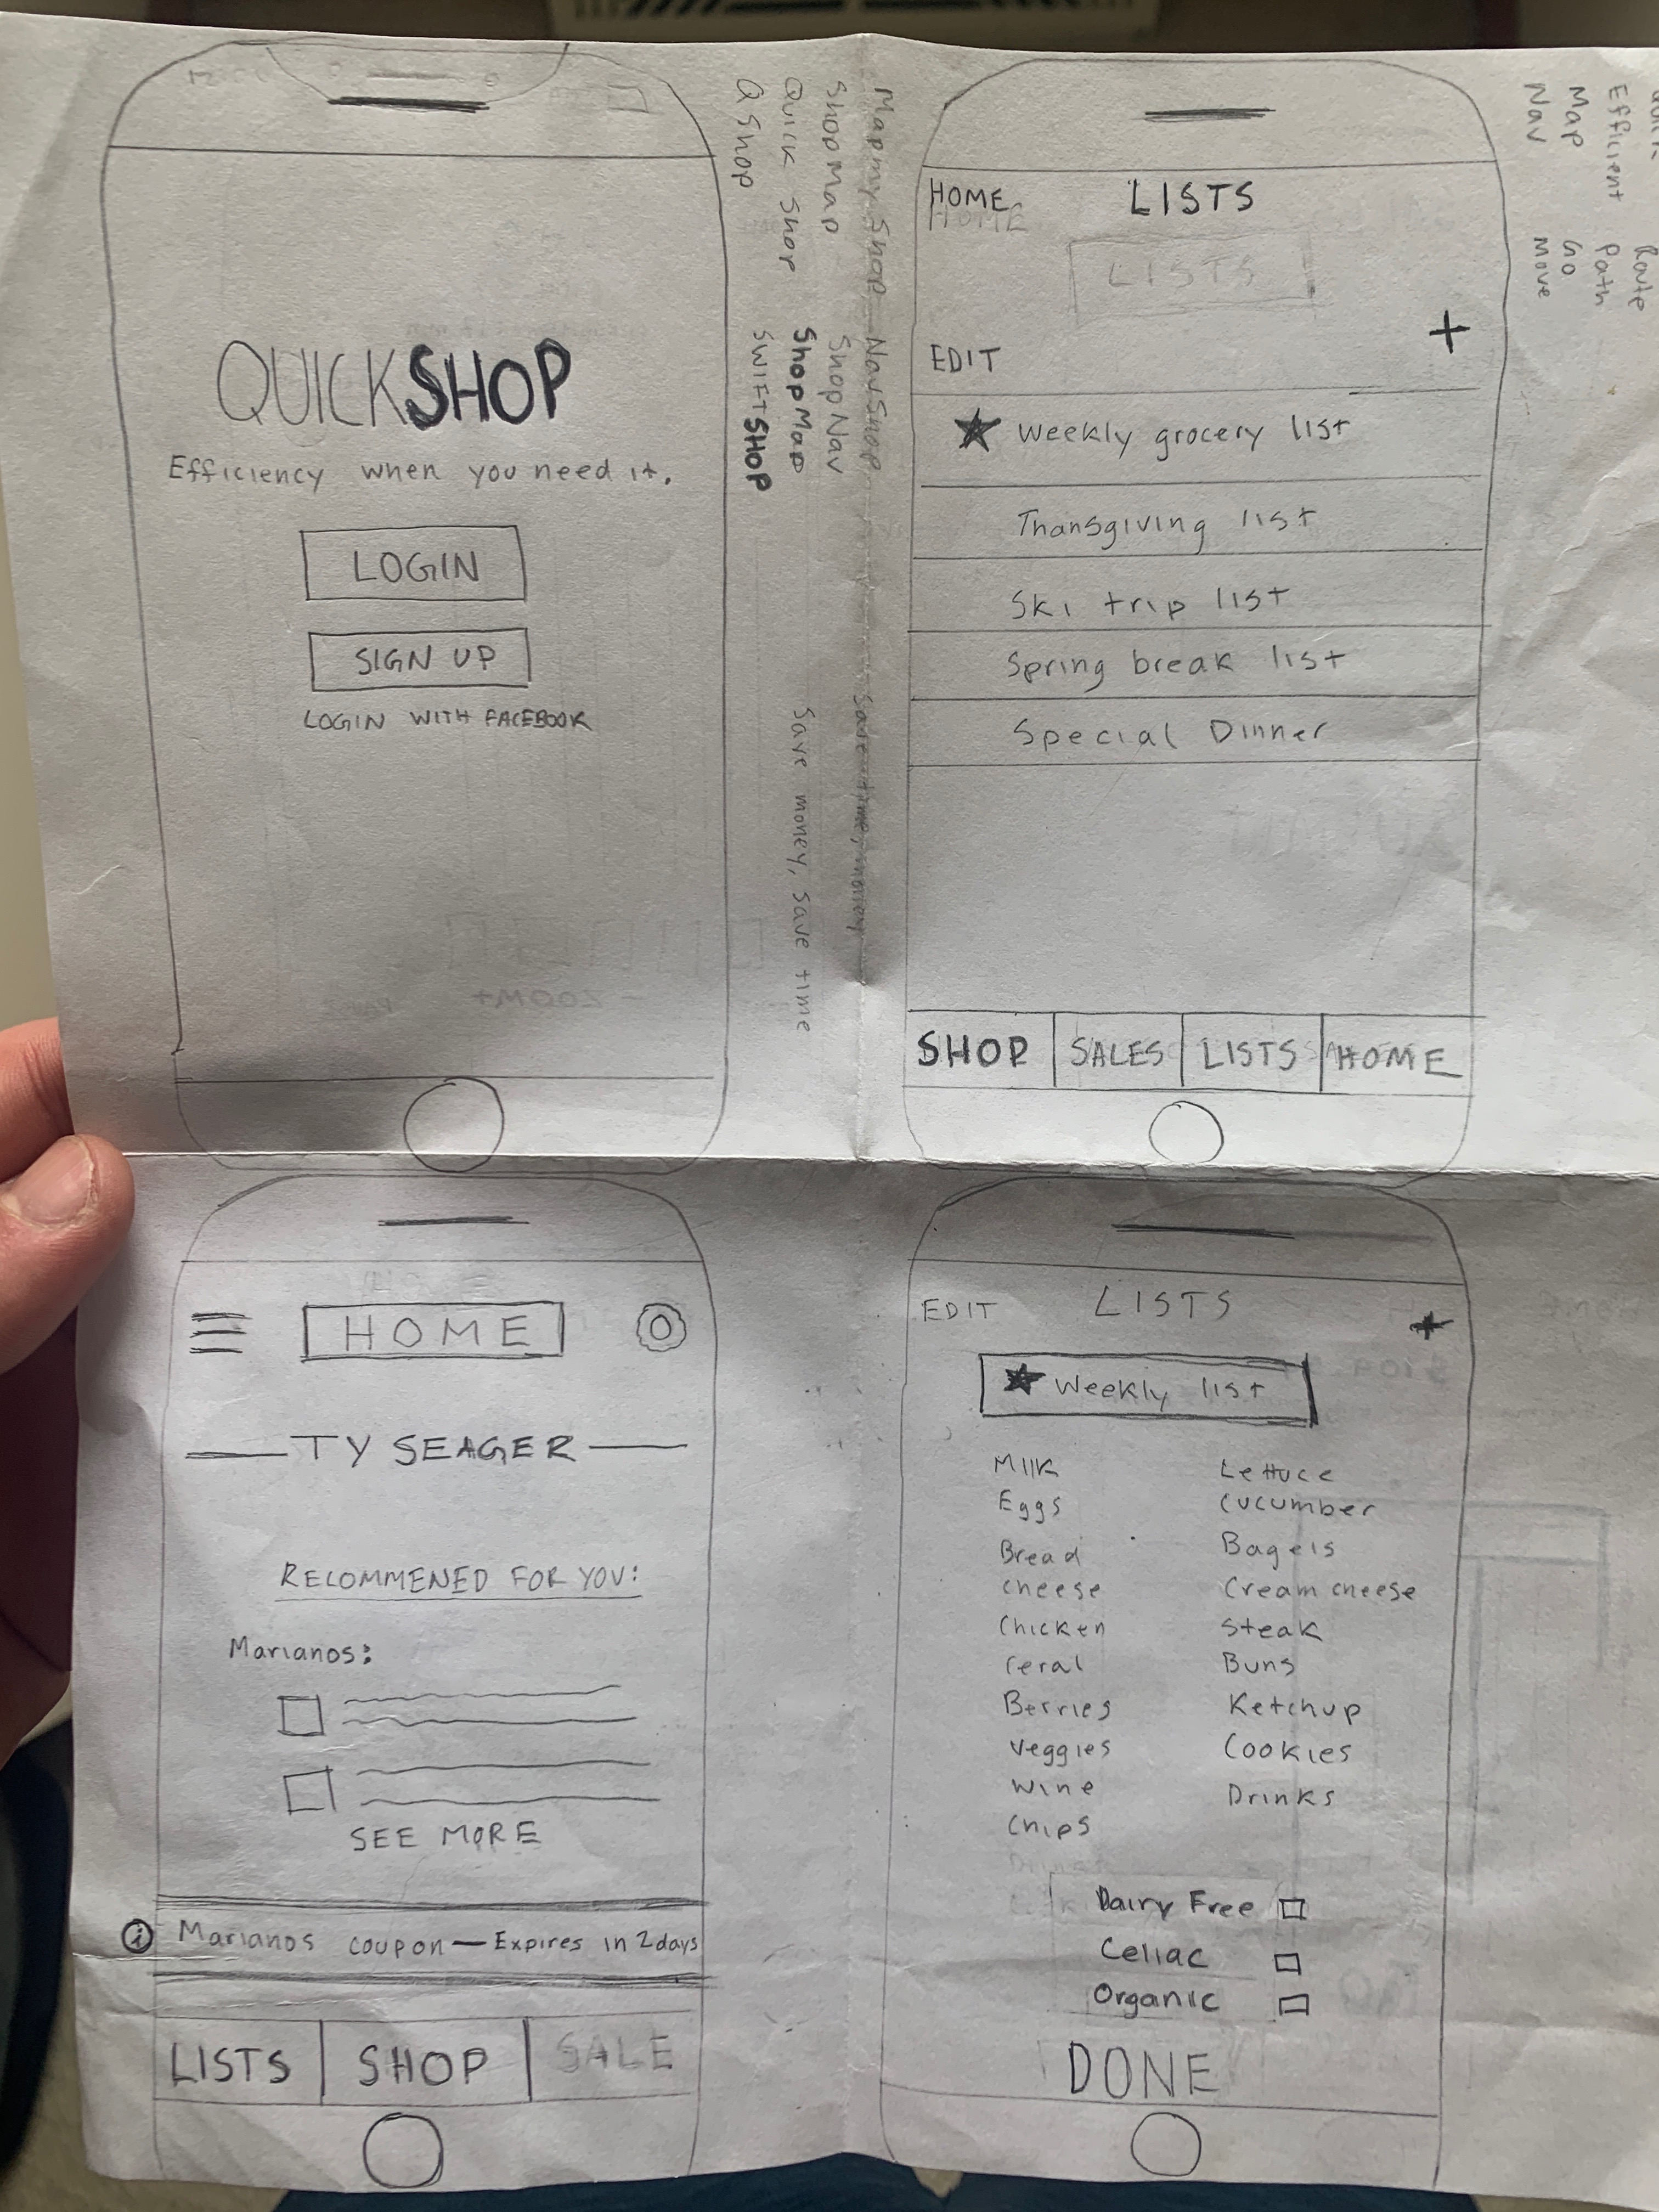 QUICKSHOP
Efficiency when you need it.
LOGIN
SIGN UP
LOGIN WITH FACEBOOK
Map my Shop
NavShop
ShopMap
ShopNav
Quick Shop
ShopMap
Q Shop
SWIFTSHOP
Save time, money
Save money, save time
HOME
HOME
LISTS
LISTS
+
EDIT
★ Weekly grocery list
Thansgiving list
Ski trip list
Spring break list
Special Dinner
SHOP
SALES
LISTS
HOME
Route
Efficient
Path
Map
Go
Nav
Move
HOME
TY SEAGER
RECOMMENED FOR YOU:
Marianos:
SEE MORE
i Marianos coupon — Expires in 2 days
LISTS
SHOP
SALE
LISTS
EDIT
+
★ Weekly list
Milk
Eggs
Bread
cheese
Chicken
Ceral
Berries
Veggies
Wine
Chips
Lettuce
Cucumber
Bagels
Cream cheese
Steak
Buns
Ketchup
Cookies
Drinks
Dairy Free
Celiac
Organic
DONE